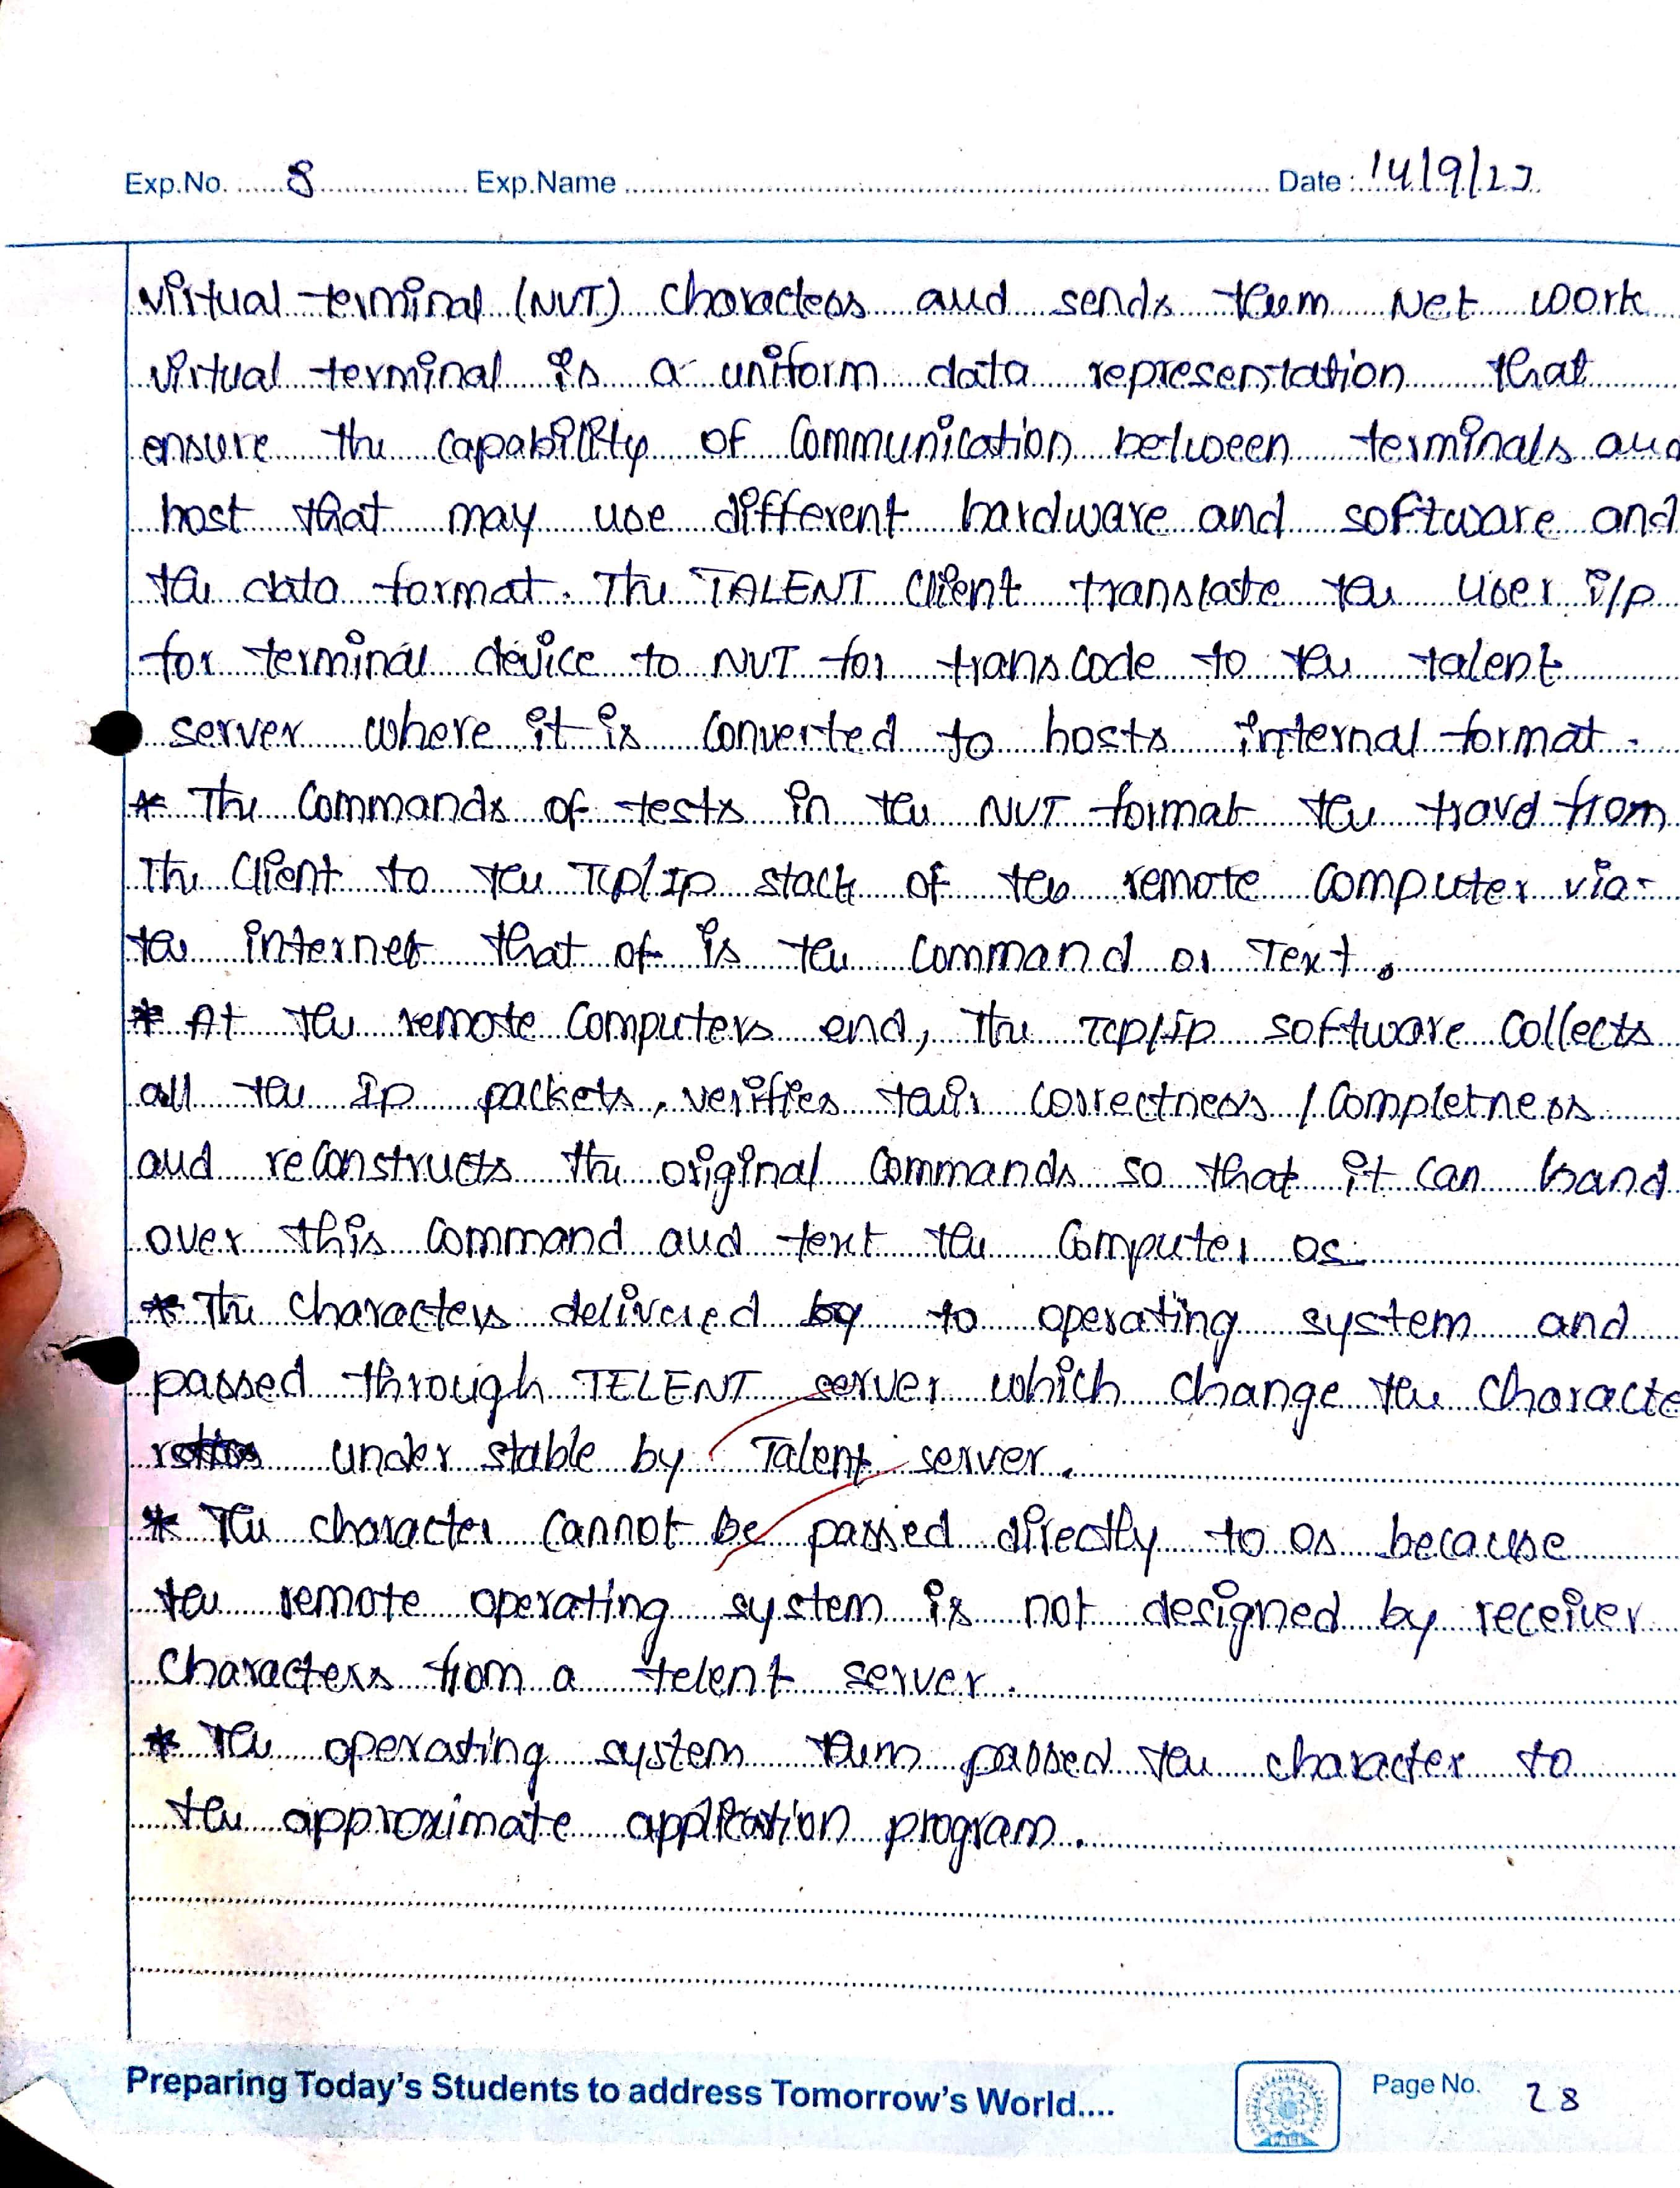 Exp.No. 8 Exp.Name Date : 14/9/23
virtual terminal (NVT) characters and sends them Net work
virtual terminal is a uniform data representation that
ensure the capability of Communication between terminals and
host that may use different hardware and software and
the data format. The TALENT Client translate the user i/p
for terminal device to NVT for trans code to the talent
server where it is converted to hosts internal format.
* The Commands of tests in the NVT format the travd from
The Client to the TCP/IP stack of the remote computer via
the internet that of is the command or Text.
* At the remote Computers end, The TCP/IP software Collects
all the Ip packets, verifies their correctness / Completness
and reconstructs the original Commands so that it can hand
over this Command and text the Computer os
* The characters delivered by to operating system and
passed through TELENT server which change the characte
under stable by Talent server.
* The character cannot be passed directly to os because
the remote operating system is not designed by receiver
Characters from a telent server.
* The operating system them passed the character to
the approximate application program.
Preparing Today's Students to address Tomorrow's World....
Page No. 28